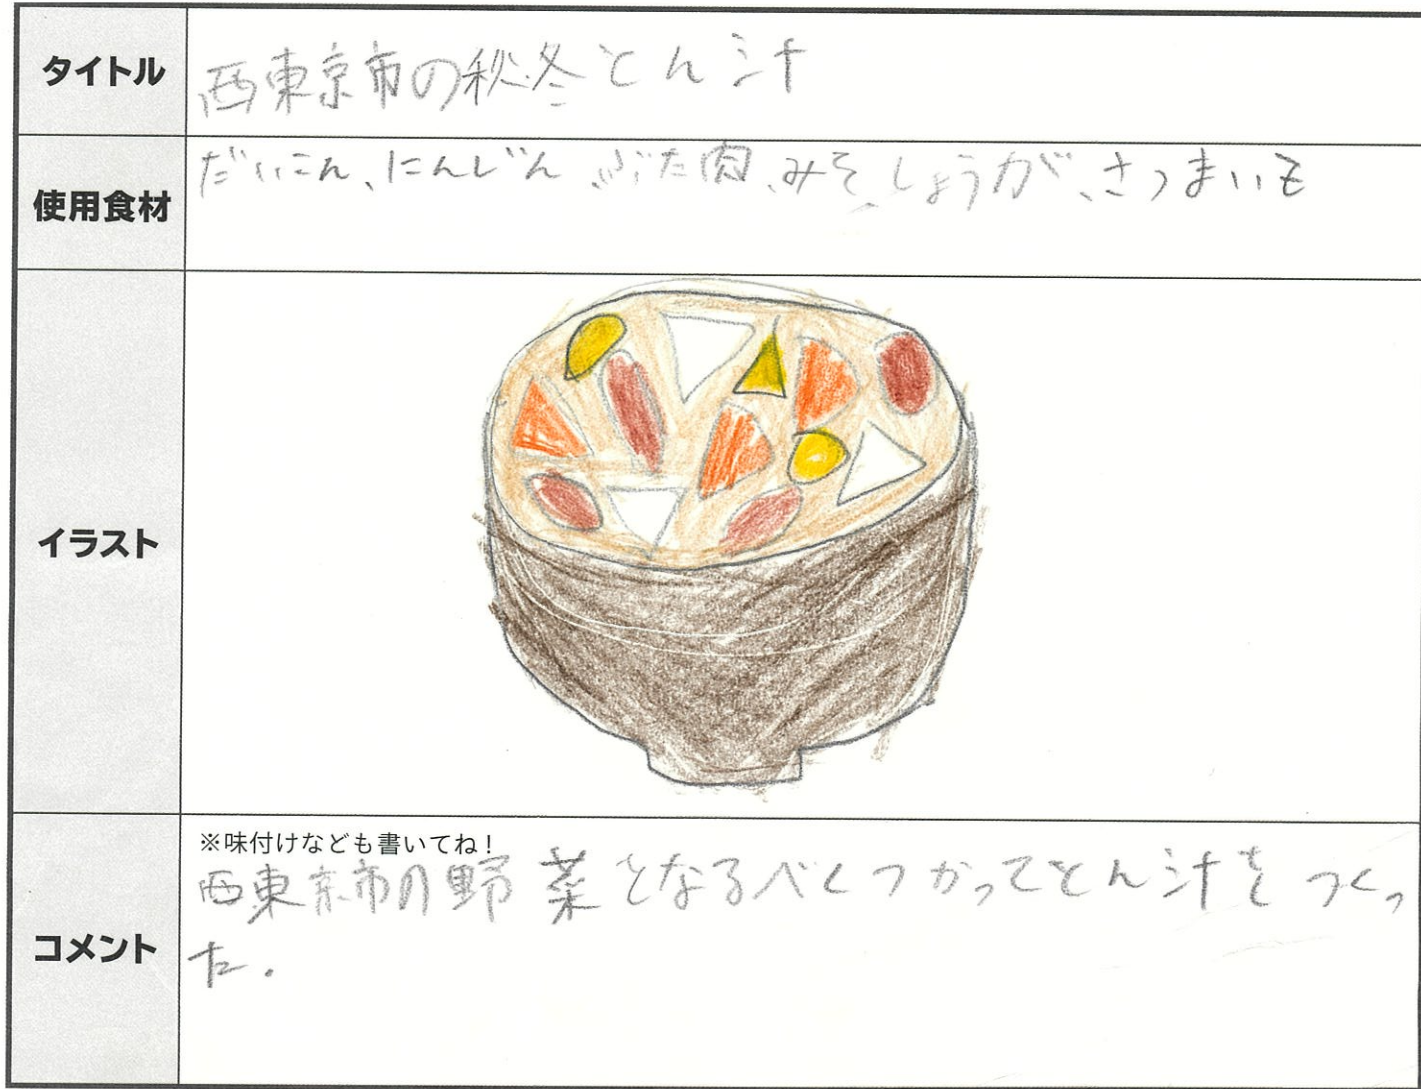 タイトル
西東京市の秋冬とん汁
使用食材
だいこん、にんじん、ぶた肉、みそ、しょうが、さつまいも
イラスト
コメント
※味付けなども書いてね!
西東京市の野菜となるべくつかってとん汁をつくっ
た。